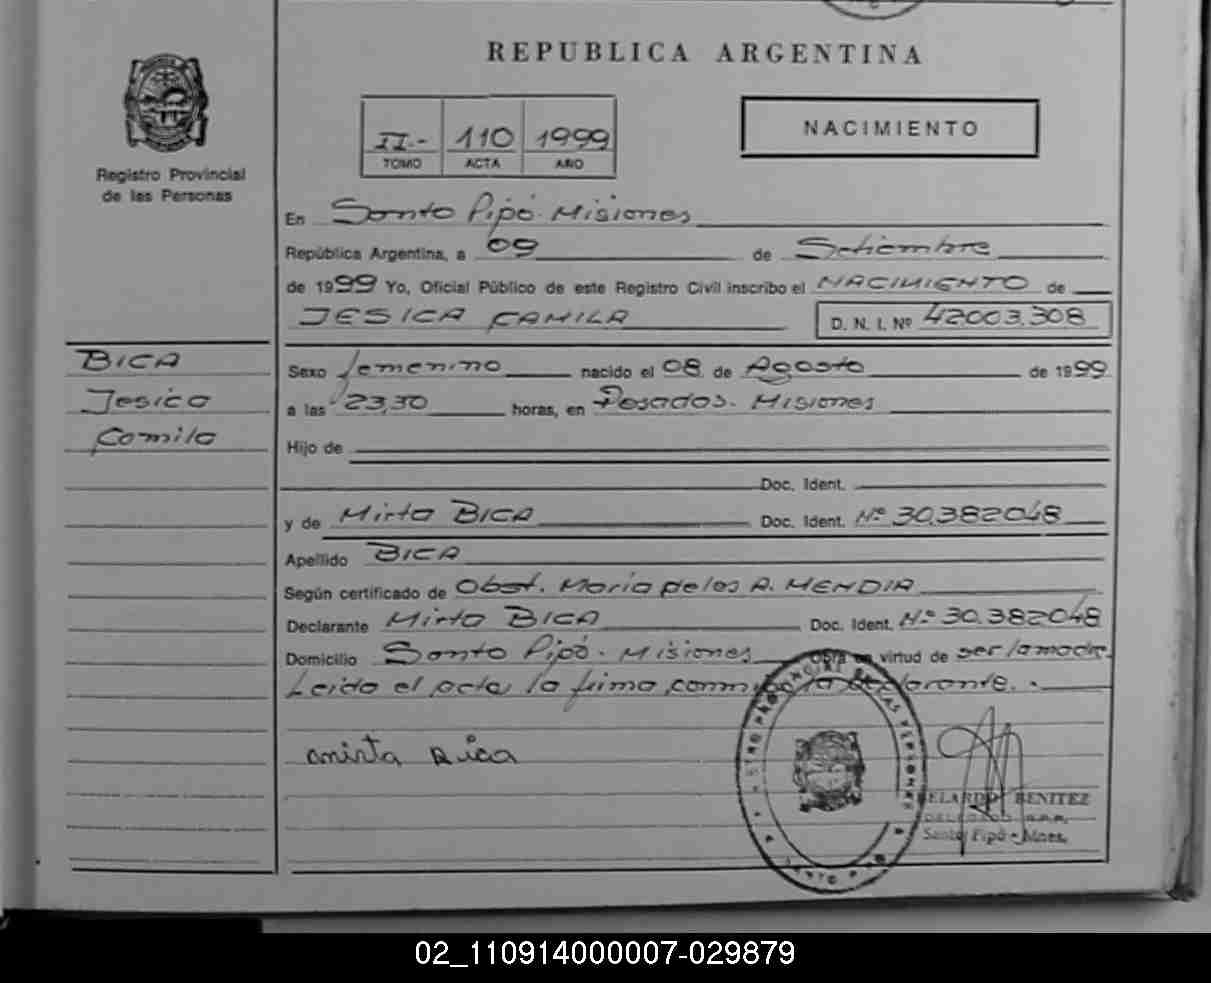 REPUBLICA ARGENTINA
Registro Provincial
de las Personas
II.- 110 1999
TOMO ACTA AÑO
NACIMIENTO
En Santo Pipó. Misiones
República Argentina, a 09 de Setiembre
de 1999 Yo, Oficial Público de este Registro Civil inscribo el NACIMIENTO de
JESICA CAMILA D. N. I. Nº 42003.308
BICA
Jesica
Camila
Sexo femenino nacido el 08 de Agosto de 1999
a las 23,30 horas, en Posadas. Misiones
Hijo de
Doc. Ident.
y de Mirta BICA Doc. Ident. Nº 30.382048
Apellido BICA
Según certificado de Obst. Maria de los A. MENDIA
Declarante Mirta BICA Doc. Ident. Nº 30.382048
Domicilio Santo Pipó. Misiones Obra en virtud de ser la madre.
Leida el acta, la firma conmigo la declarante.
mirta Bica
ELARDO BENITEZ
DELEGADO R.P.P.
Santo Pipó - Mnes.
02_110914000007-029879